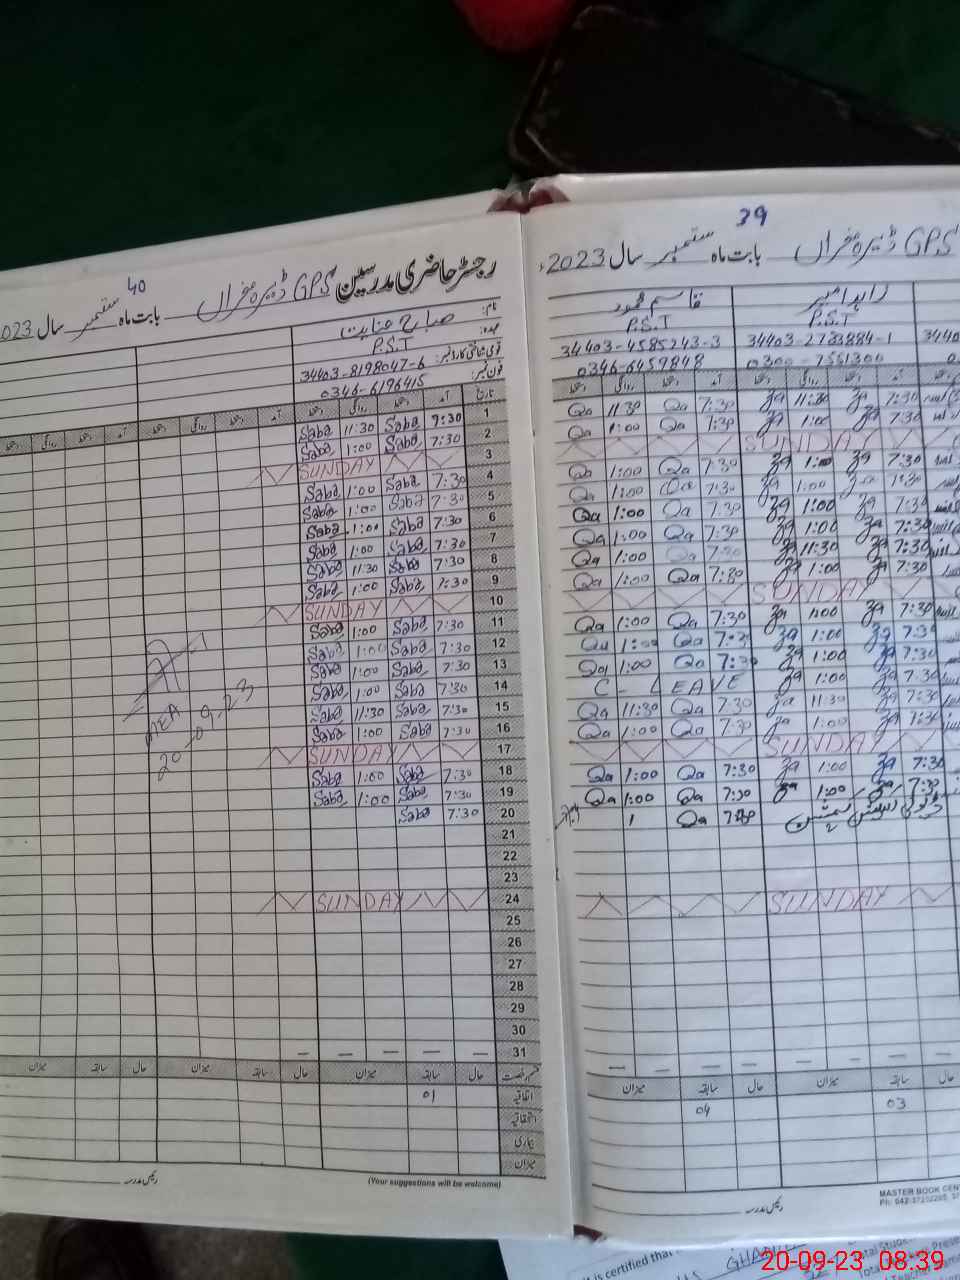 40
رجسٹر حاضری مدرسین GPS ڈیرہ بابت ماہ ستمبر سال 2023
نام: صباح عنایت
عہدہ: P.S.T
قومی شناختی کارڈ نمبر: 34403-8198047-6
فون نمبر: 0346-6196415
تاریخ آمد دستخط روانگی دستخط آمد دستخط روانگی دستخط آمد دستخط روانگی دستخط
1 7:30 Saba 11:30 Saba
2 7:30 Saba 1:00 Saba
3 SUNDAY
4 7:30 Saba 1:00 Saba
5 7:30 Saba 1:00 Saba
6 7:30 Saba 1:00 Saba
7 7:30 Saba 1:00 Saba
8 7:30 Saba 11:30 Saba
9 7:30 Saba 1:00 Saba
10 SUNDAY
11 7:30 Saba 1:00 Saba
12 7:30 Saba 1:00 Saba
13 7:30 Saba 1:00 Saba
14 7:30 Saba 1:00 Saba
15 7:30 Saba 11:30 Saba
16 7:30 Saba 1:00 Saba
17 SUNDAY
18 7:30 Saba 1:00 Saba
19 7:30 Saba 1:00 Saba
20 7:30 Saba
21
22
23
24 SUNDAY
25
26
27
28
29
30
31
AEA
20-09-23
حال سابقہ میزان حال سابقہ میزان حال سابقہ میزان
اتفاقیہ 01
استحقاقیہ
بیماری
میزان
رئیس مدرسہ
(Your suggestions will be welcome)
39
GPS ڈیرہ بابت ماہ ستمبر سال 2023ء
زاہد امیر قاسم محمود
P.S.T P.S.T
34403-2733884-1 34403-4585243-3
0300-7551300 0346-6459848
آمد دستخط روانگی دستخط آمد دستخط روانگی دستخط
7:30 Za 11:30 Za 7:30 Qa 11:30 Qa
7:30 Za 1:00 Za 7:30 Qa 1:00 Qa
SUNDAY
7:30 Za 1:00 Za 7:30 Qa 1:00 Qa
7:30 Za 1:00 Za 7:30 Qa 1:00 Qa
7:30 Za 1:00 Za 7:30 Qa 1:00 Qa
7:30 Za 1:00 Za 7:30 Qa 1:00 Qa
7:30 Za 11:30 Za 7:30 Qa 1:00 Qa
7:30 Za 1:00 Za 7:30 Qa 1:00 Qa
SUNDAY
7:30 Za 1:00 Za 7:30 Qa 1:00 Qa
7:30 Za 1:00 Za 7:30 Qa 1:00 Qa
7:30 Za 1:00 Za 7:30 Qa 1:00 Qa
7:30 Za 1:00 Za C-LEAVE
7:30 Za 11:30 Za 7:30 Qa 11:30 Qa
7:30 Za 1:00 Za 7:30 Qa 1:00 Qa
SUNDAY
7:30 Za 1:00 Za 7:30 Qa 1:00 Qa
7:30 Za 1:00 Za 7:30 Qa 1:00 Qa
7:30 Qa 1
SUNDAY
حال سابقہ میزان حال سابقہ میزان
03 04
رئیس مدرسہ
MASTER BOOK CEN
it is certified that
Total Stude
20-09-23 08:39